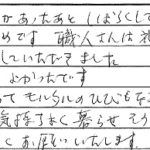 があったあと しばらくして
めです 職人さんは
していただきました
よかったです
って モルタルのひびもな
気持ちよく暮らせそう
くお願いいたします。